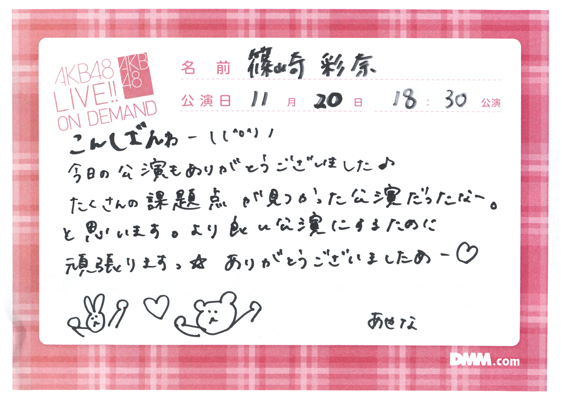 AKB48
LIVE!!
ON DEMAND
AKB
48
名前 篠崎 彩奈
公演日 11月20日 18:30公演
こんしざんわー ((^o^)ノ
今日の公演もありがとうございました♪
たくさんの課題点が見つかった公演だったなー。
と思います。より良い公演にするために
頑張りますっ☆ ありがとうございましたぁー♡
あやな
DMM.com